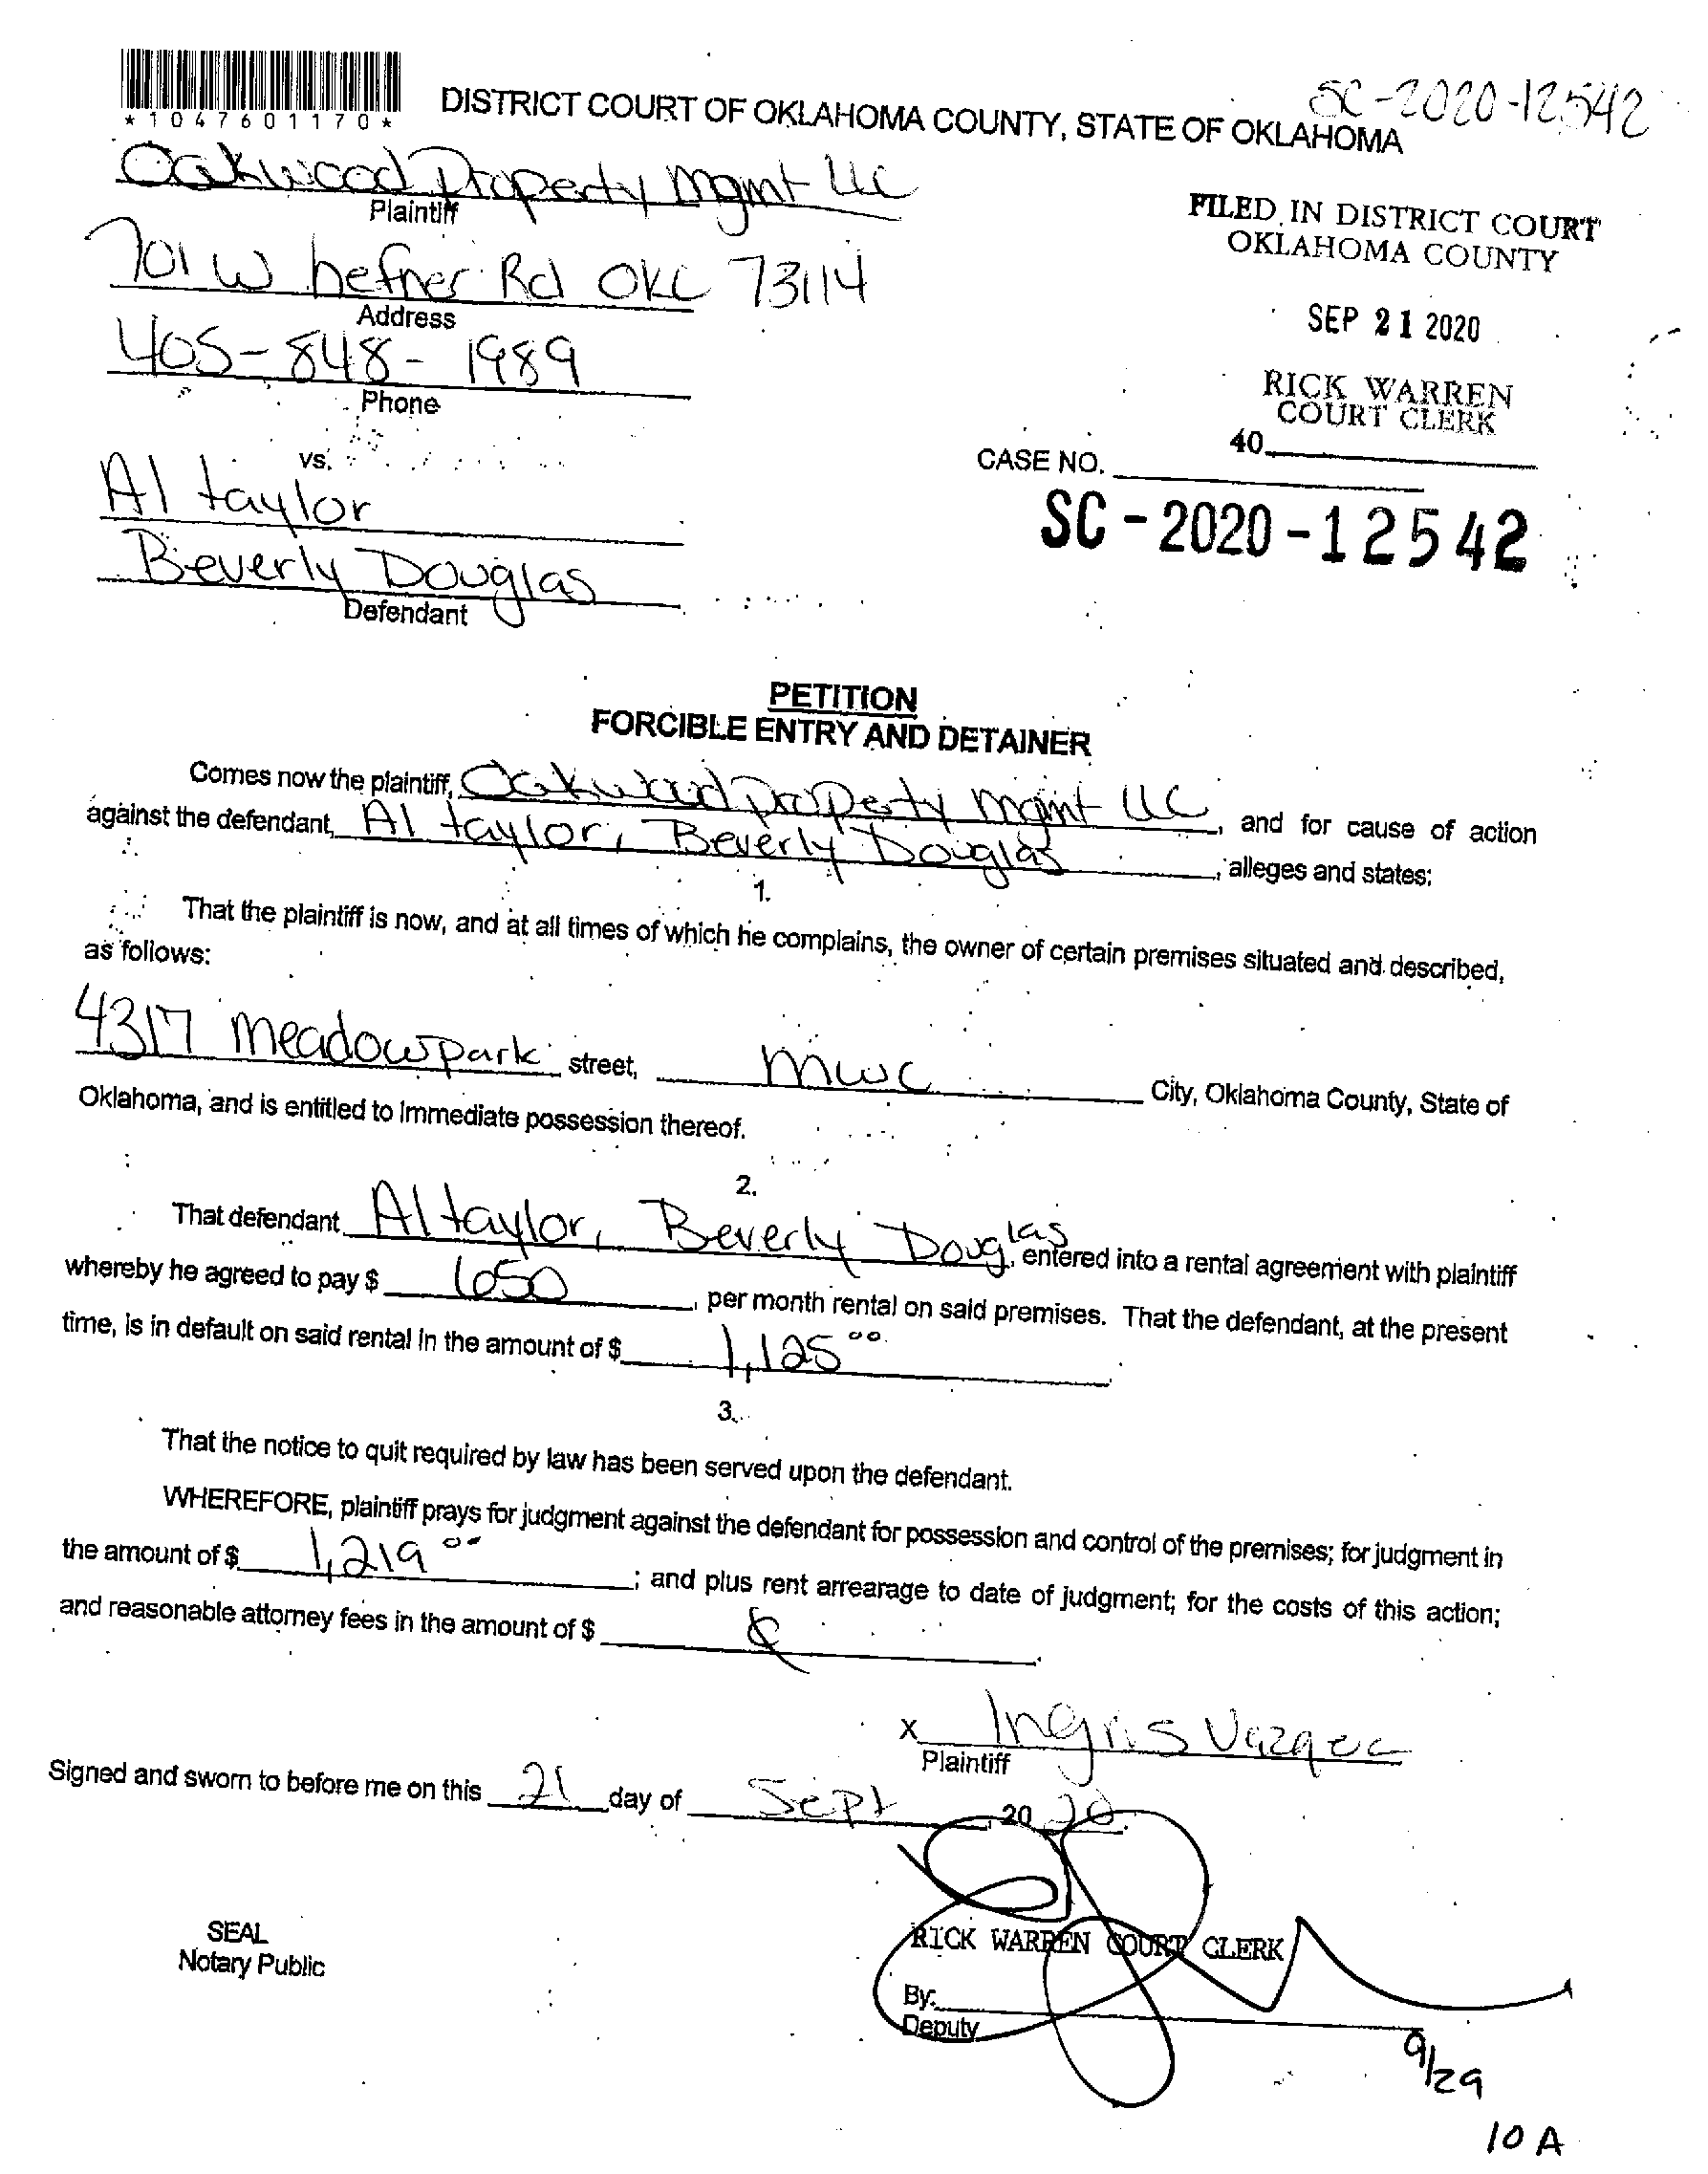 *1047601170*
SC-2020-12542
DISTRICT COURT OF OKLAHOMA COUNTY, STATE OF OKLAHOMA
Oakwood Property Mgmt LLC
Plaintiff
701 W hefner Rd OKC 73114
Address
405-848-1989
Phone
FILED IN DISTRICT COURT
OKLAHOMA COUNTY
SEP 21 2020
RICK WARREN
COURT CLERK
40
vs.
CASE NO.
SC-2020-12542
Al taylor
Beverly Douglas
Defendant
PETITION
FORCIBLE ENTRY AND DETAINER
Comes now the plaintiff, Oakwood Property Mgmt LLC, and for cause of action
against the defendant, Al taylor, Beverly Douglas, alleges and states:
1.
That the plaintiff is now, and at all times of which he complains, the owner of certain premises situated and described,
as follows:
4317 Meadowpark street, MWC City, Oklahoma County, State of
Oklahoma, and is entitled to immediate possession thereof.
2.
That defendant Al taylor, Beverly Douglas, entered into a rental agreement with plaintiff
whereby he agreed to pay $ 650, per month rental on said premises. That the defendant, at the present
time, is in default on said rental in the amount of $ 1,125 00.
3.
That the notice to quit required by law has been served upon the defendant.
WHEREFORE, plaintiff prays for judgment against the defendant for possession and control of the premises; for judgment in
the amount of $ 1,219 00; and plus rent arrearage to date of judgment; for the costs of this action;
and reasonable attorney fees in the amount of $
X Ingris Vazquez
Plaintiff
Signed and sworn to before me on this 21 day of Sept, 20 20.
SEAL
Notary Public
RICK WARREN COURT CLERK
By:
Deputy
9/29
10 A